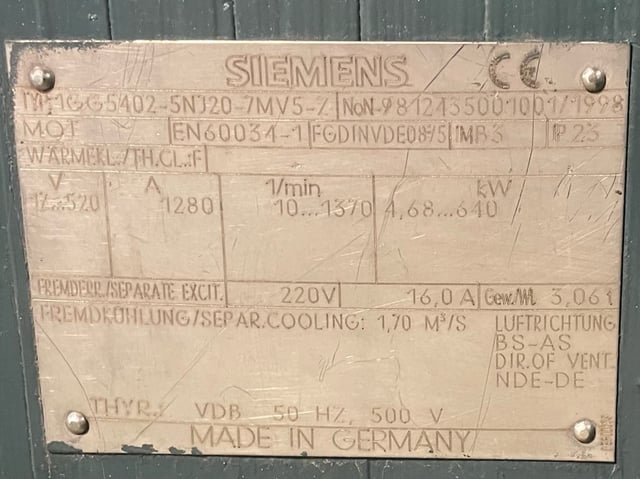 SIEMENS CE
TYP 1GG5402-5NJ20-7MV5-Z NoN-9812435001001/1998
MOT EN60034-1 FGDINVDE0875 IMB3 IP23
WÄRMEKL./TH.CL.:F
V A 1/min kW
12...520 1280 10...1370 4,68...640
FREMDERR./SEPARATE EXCIT. 220V 16,0A Gew./Wt. 3,06t
FREMDKÜHLUNG/SEPAR.COOLING: 1,70 M³/S LUFTRICHTUNG
BS-AS
DIR.OF VENT.
NDE-DE
THYR.: VDB 50 HZ, 500 V
MADE IN GERMANY